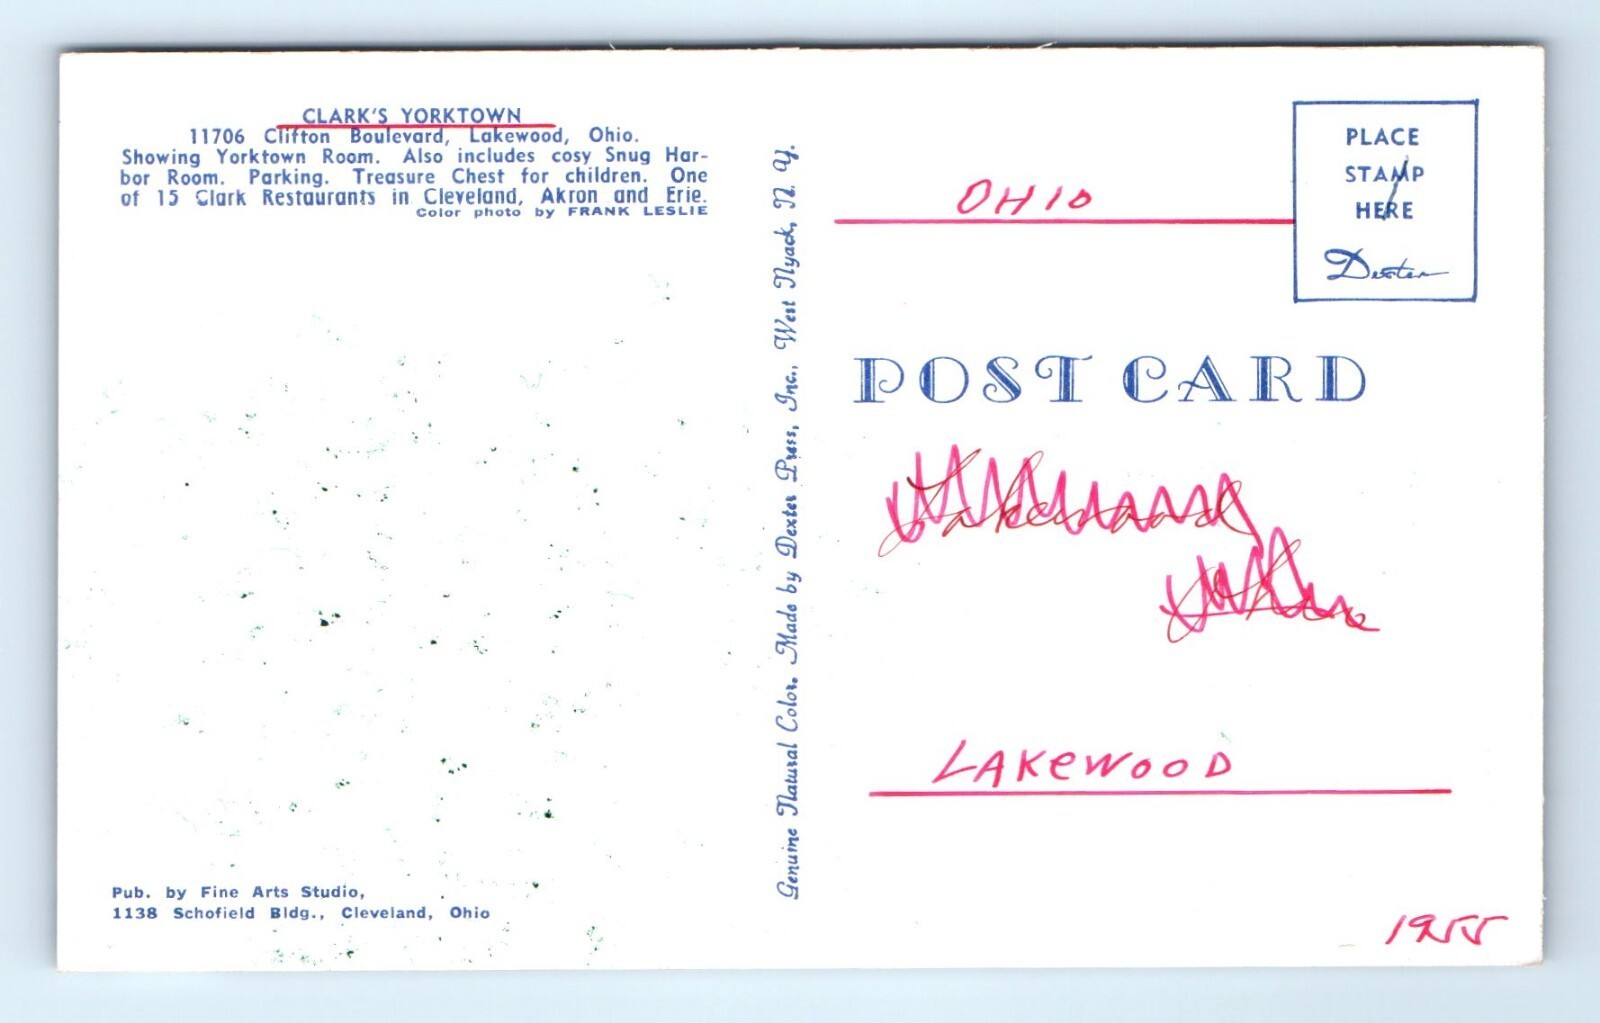 CLARK'S YORKTOWN
11706 Clifton Boulevard, Lakewood, Ohio.
Showing Yorktown Room. Also includes cosy Snug Har-
bor Room. Parking. Treasure Chest for children. One
of 15 Clark Restaurants in Cleveland, Akron and Erie.
Color photo by FRANK LESLIE
Pub. by Fine Arts Studio,
1138 Schofield Bldg., Cleveland, Ohio
Genuine Natural Color. Made by Dexter Press, Inc., West Nyack, N. Y.
OHIO
PLACE
STAMP
HERE
Dexter
POST CARD
Lakewood
LAKEWOOD
1955